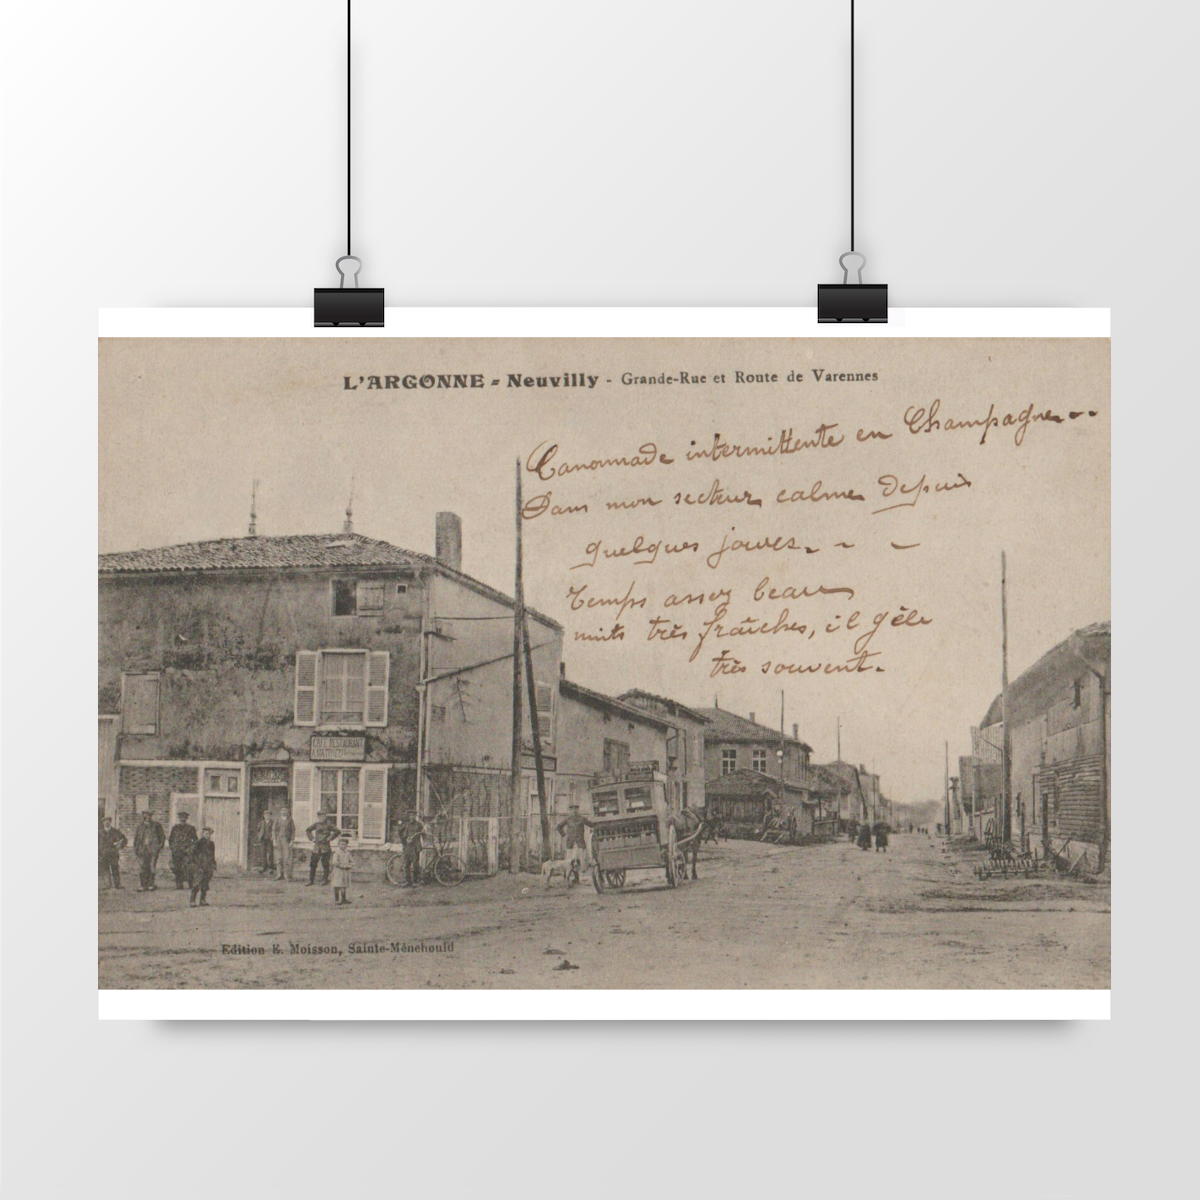 L'ARGONNE - Neuvilly - Grande-Rue et Route de Varennes
Canonnade intermittente en Champagne --
Dans mon secteur calme depuis
quelques jours. - -
Temps assez beau
nuits très fraîches, il gèle
très souvent.
CAFÉ RESTAURANT
Edition E. Moisson, Sainte-Ménehould